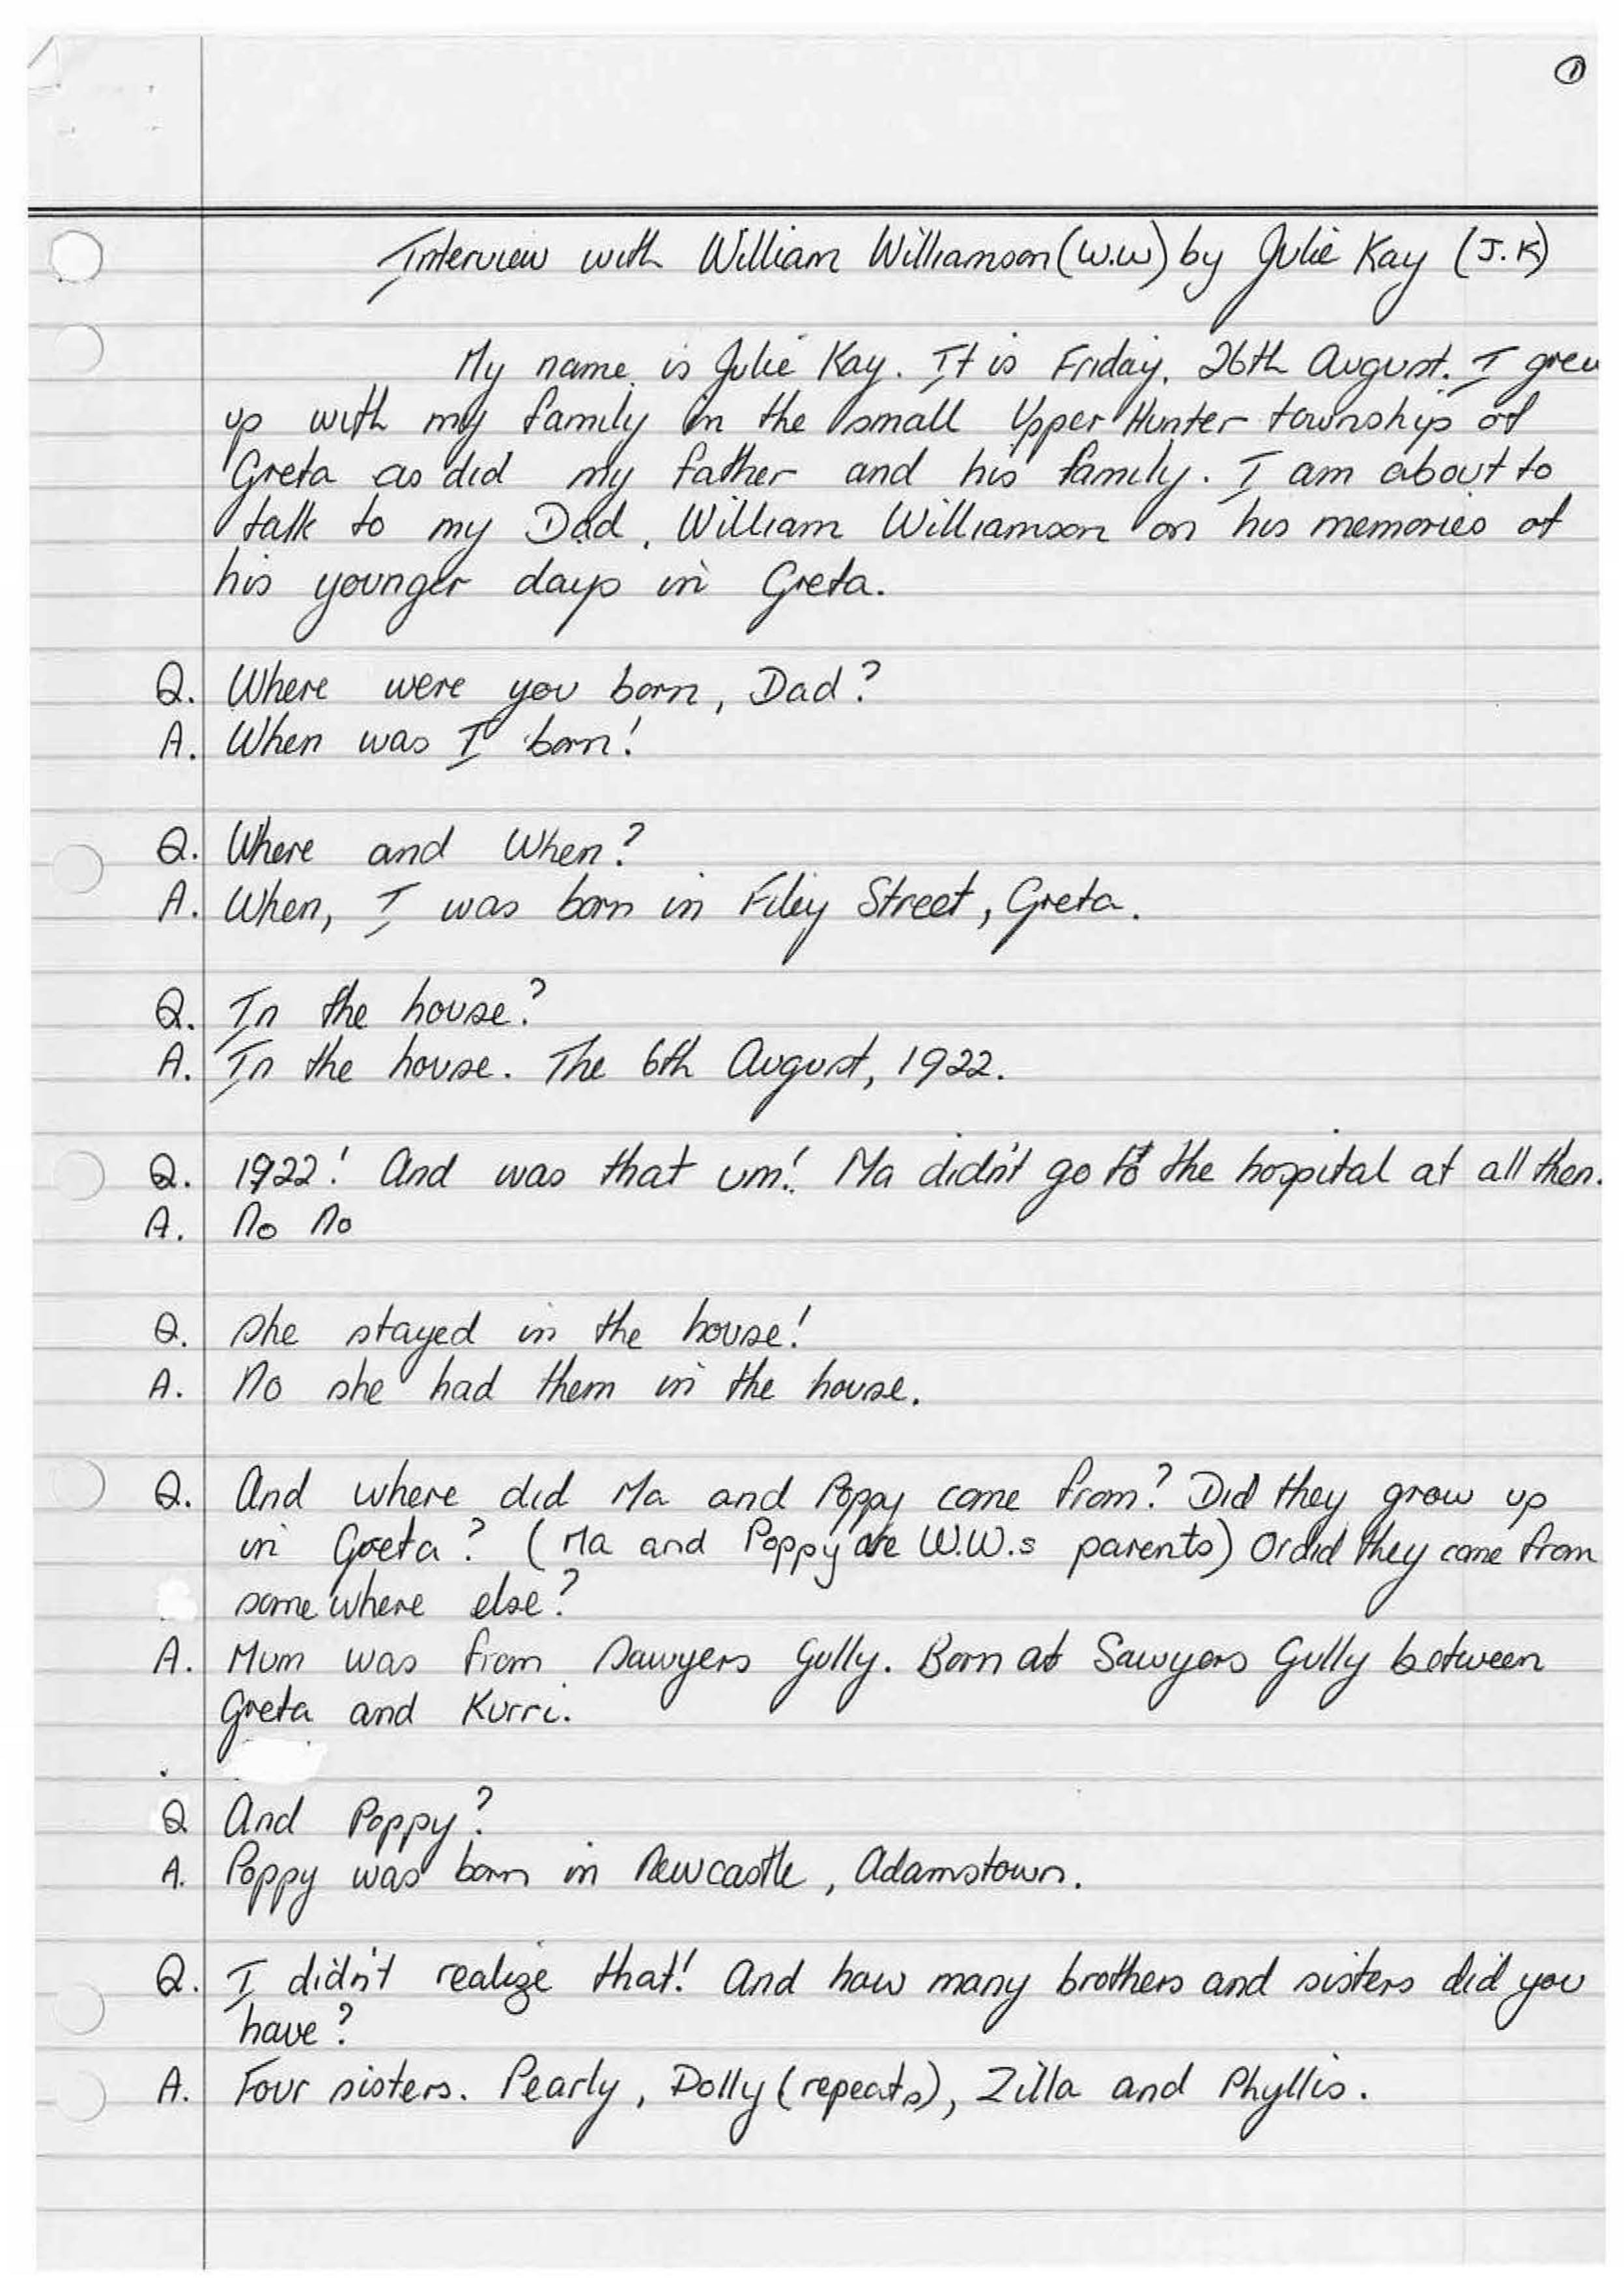 ①
Interview with William Williamson (W.W) by Julie Kay (J.K)
My name is Julie Kay. It is Friday, 26th August. I grew
up with my family in the small Upper Hunter township of
Greta as did my father and his family. I am about to
talk to my Dad, William Williamson on his memories of
his younger days in Greta.
Q. Where were you born, Dad?
A. When was I born!
Q. Where and When?
A. When, I was born in Filey Street, Greta.
Q. In the house?
A. In the house. The 6th August, 1922.
Q. 1922! And was that um! Ma didn't go to the hospital at all then.
A. No no
Q. She stayed in the house!
A. No she had them in the house.
Q. And where did Ma and Poppy come from? Did they grow up
in Greta? (Ma and Poppy are W.W.s parents) Or did they come from
somewhere else?
A. Mum was from Sawyers Gully. Born at Sawyers Gully between
Greta and Kurri.
Q And Poppy?
A. Poppy was born in Newcastle, Adamstown.
Q. I didn't realize that! And how many brothers and sisters did you
have?
A. Four sisters. Pearly, Dolly (repeats), Zilla and Phyllis.